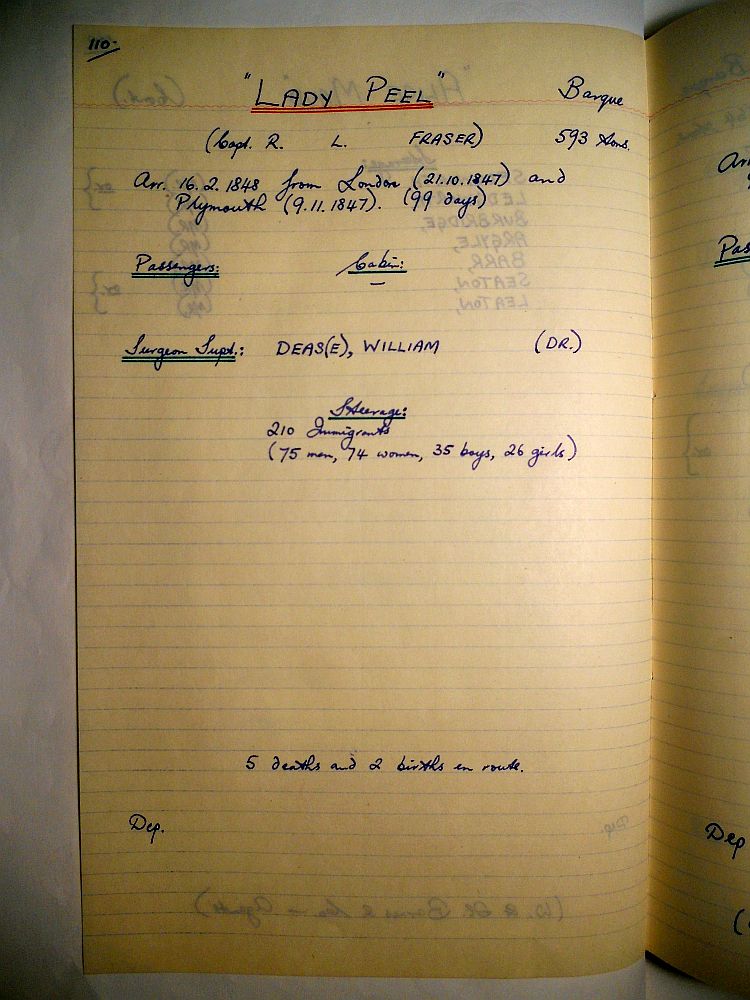 110-
"LADY PEEL" Barque
(Capt. R. L. FRASER) 593 tons.
Arr. 16.2.1848 from London (21.10.1847) and
Plymouth (9.11.1847). (99 days)
Passengers: Cabin:
—
Surgeon Supt.: DEAS(E), WILLIAM (DR.)
Steerage:
210 Immigrants
(75 men, 74 women, 35 boys, 26 girls)
5 deaths and 2 births en route.
Dep.
Dep